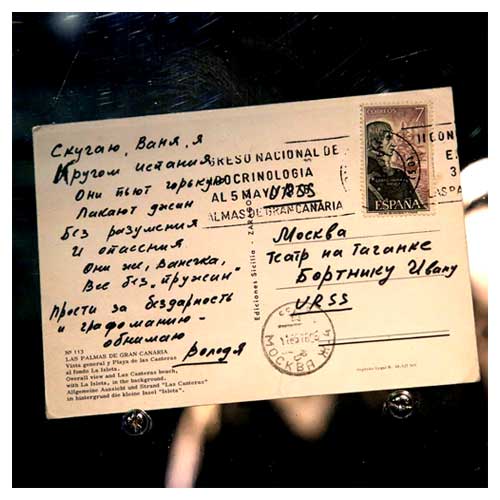 Скучаю, Ваня, я
Кругом Испания
Они пьют горькую
Лакают джин
Без разумения
И опасения
Они же, Ванечка,
Все без "пружин"
Прости за бездарность
и графоманию -
обнимаю
Володя
Nº 113
LAS PALMAS DE GRAN CANARIA
Vista general y Playa de las Canteras
al fondo La Isleta.
Overall view and Las Canteras beach,
with La Isleta, in the background.
Allgemeine Ansicht und Strand "Las Canteras"
im hintergrund die kleine Insel "Isleta"
Ediciones Sicilia - ZARAGO
GRESO NACIONAL DE
DOCRINOLOGIA
AL 5 MAYO
ALMAS DE GRAN CANARIA
URSS
CORREOS 7
ESPAÑA
II CON
Москва
Театр на Таганке
Бортнику Ивану
URSS
МОСКВА